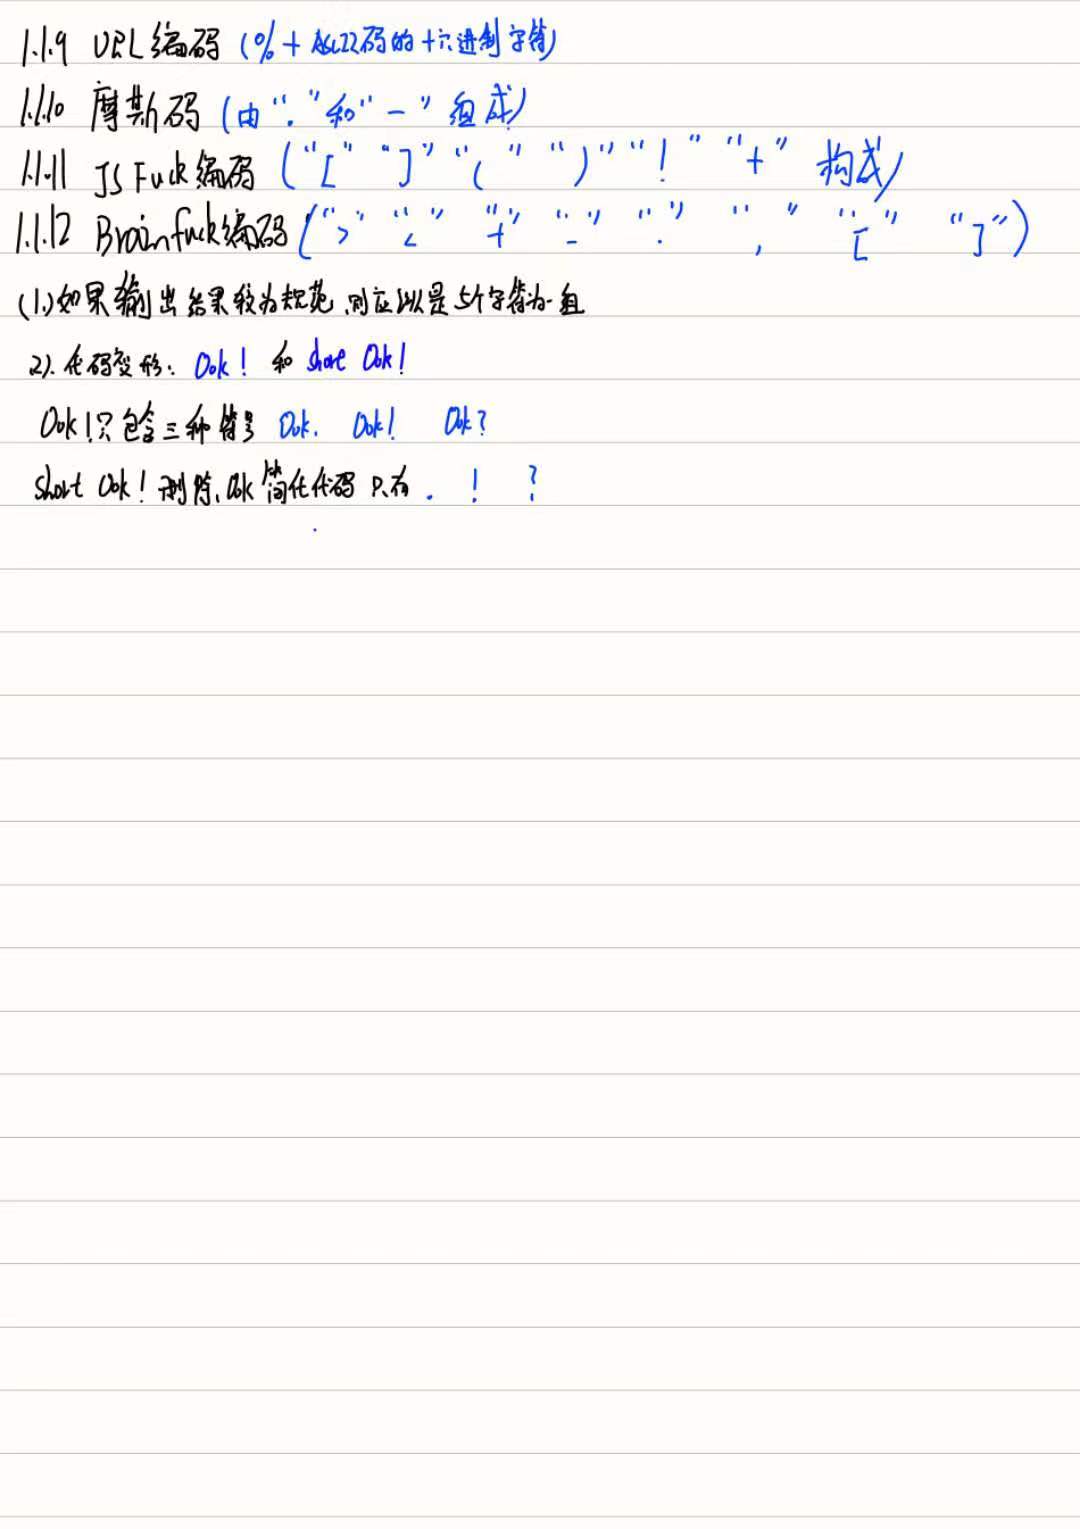 1.1.9 URL编码 (%+ASCII码的十六进制字符)
1.1.10 摩斯码 (由“.”和“-”组成)
1.1.11 JSFuck编码 (“[” “]” “(” “)” “!” “+” 构成)
1.1.12 Brainfuck编码 (“>” “<” “+” “-” “.” “,” “[” “]”)
(1.)如果输出结果较为规范,则应以是5个字符为一组
2). 代码变形: Ook! 和 short Ook!
Ook!只包含三种符号 Ook. Ook! Ook?
Short Ook! 删除.Ook 简化代码 只有 . ! ?